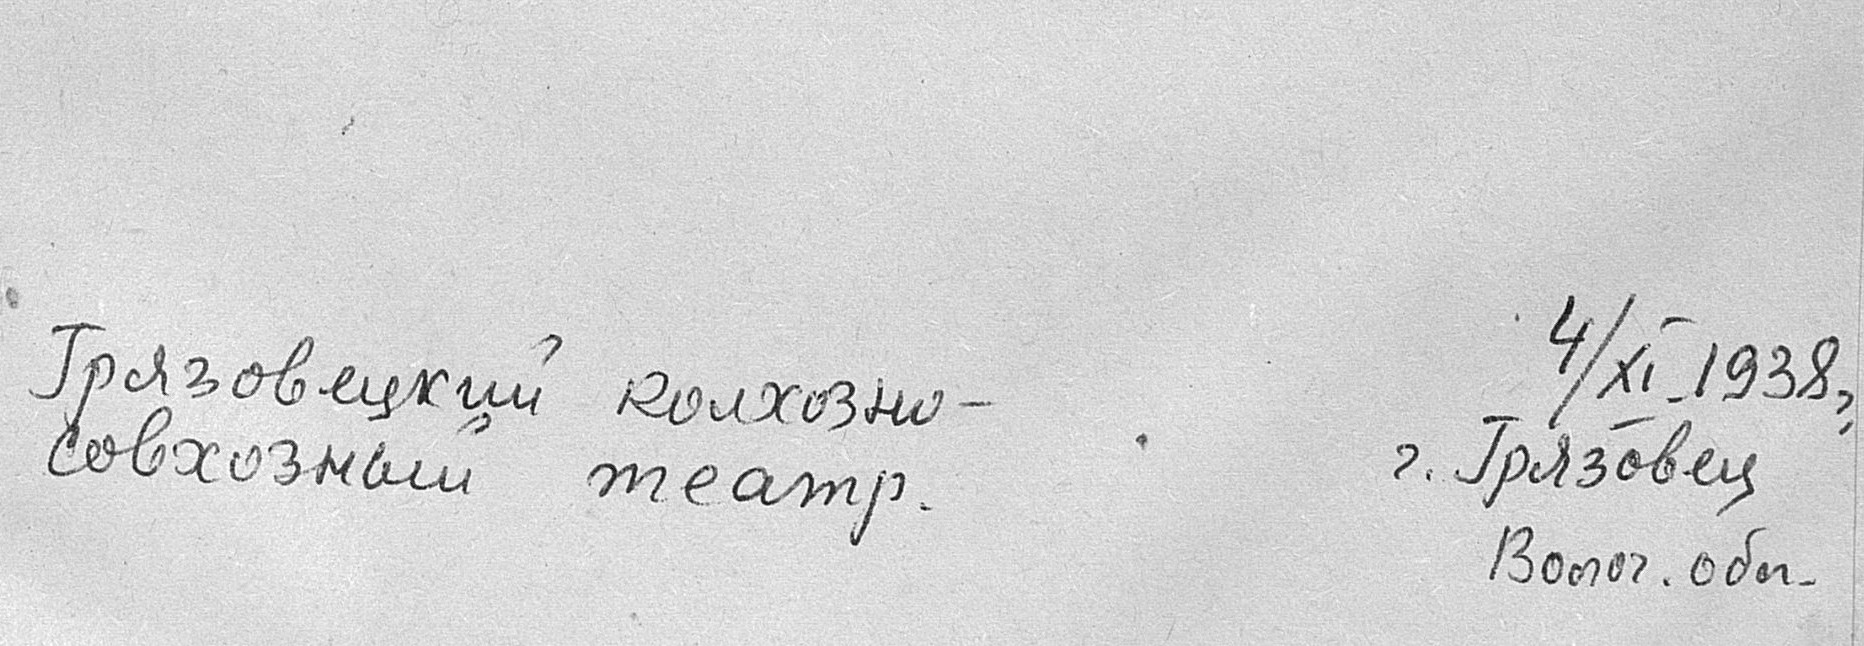 Грязовецкий колхозно-
совхозный театр.
4/XI-1938г,
г. Грязовец
Волог. обл.